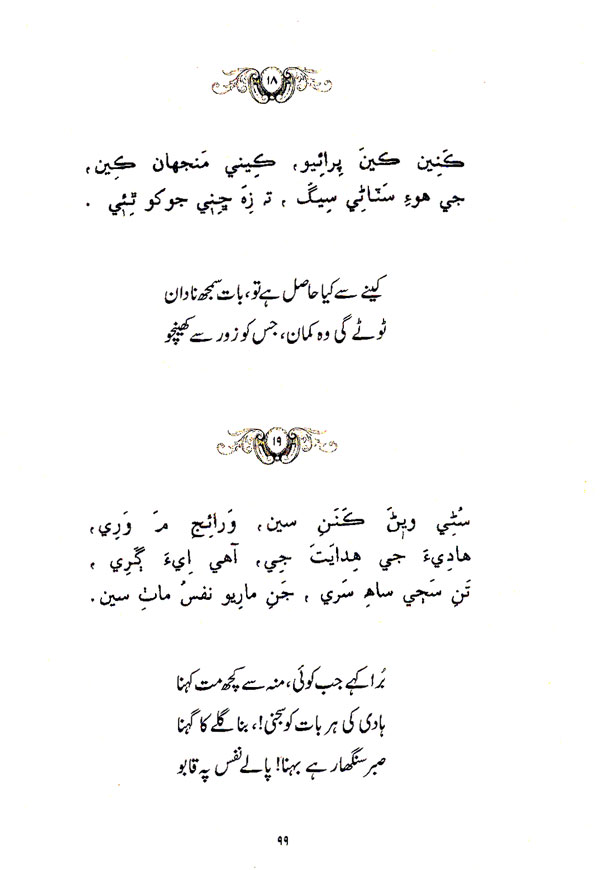 ١٨
ڪَنِين ڪينَ پِرائِيو، ڪِيني مَنجهان ڪِين،
جي هوءِ سَٽاڻِي سِيڱَ ، تہ زِہَ ڇِنِي جوکو ٿِئِي .
کینے سے کیا حاصل ہے تو، بات سمجھ نادان
ٹوٹے گی وہ کمان، جس کو زور سے کھینچو
١٩
سُڻِي ويڻَ ڪَنَنِ سين، وَرائِج مَ وَرِي،
هادِيءَ جي هِدايَتَ جِي، آهي اِيءَ ڳَرِي ،
تَنِ سَڄي ساھِ سَري ، جَنِ مارِيو نفسُ ماٺِ سين.
بُرا کہے جب کوئی، منہ سے کچھ مت کہنا
ہادی کی ہر بات کو سجنی!، بنا گلے کا گہنا
صبر سنگھار ہے بہنا! پالے نفس پہ قابو
٩٩